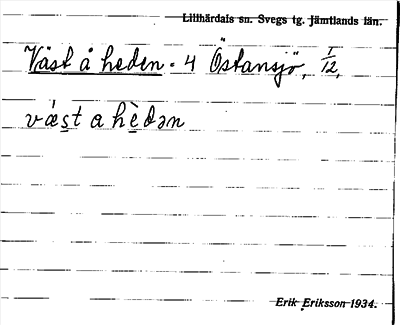 Lillhärdals sn. Svegs tg. Jämtlands län.
Väst å heden - 4 Östansjö, I/12,
vǽst a hèdən
Erik Eriksson 1934.